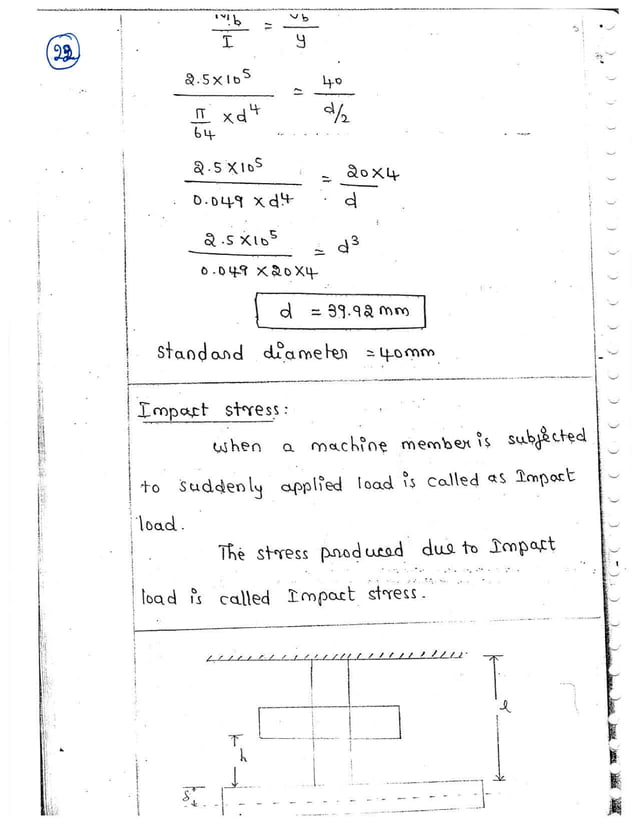 22
Mb/I = σb/y
2.5×10^5 / (π/64 × d^4) = 40 / (d/2)
2.5×10^5 / (0.049 × d^4) = 20×4 / d
2.5×10^5 / (0.049×20×4) = d^3
d = 39.92mm
Standard diameter = 40mm
Impact stress:
When a machine member is subjected
to suddenly applied load is called as Impact
load.
The stress produced due to Impact
load is called Impact stress.
l
h
δ